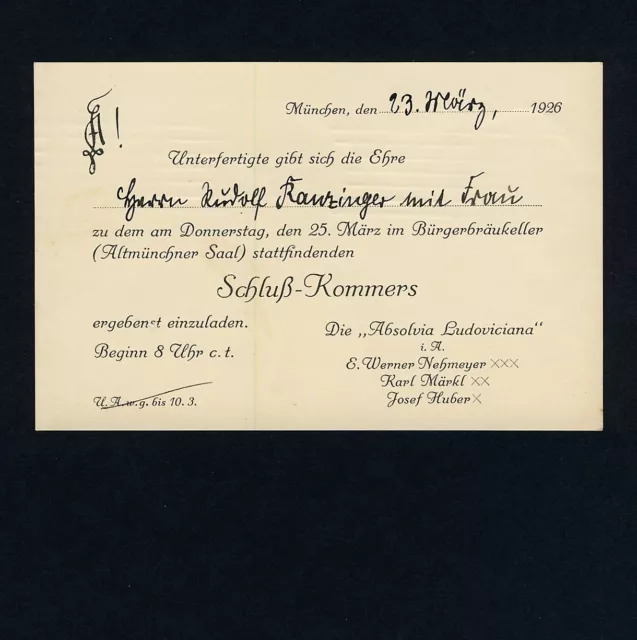 München, den 23. März, 1926
Unterfertigte gibt sich die Ehre
Herrn Rudolf Kanzinger mit Frau
zu dem am Donnerstag, den 25. März im Bürgerbräukeller
(Altmünchner Saal) stattfindenden
Schluß-Kommers
ergebenst einzuladen.
Beginn 8 Uhr c. t.
U. A. w. g. bis 10. 3.
Die „Absolvia Ludoviciana“
i. A.
E. Werner Nehmeyer XXX
Karl Märkl XX
Josef Huber X